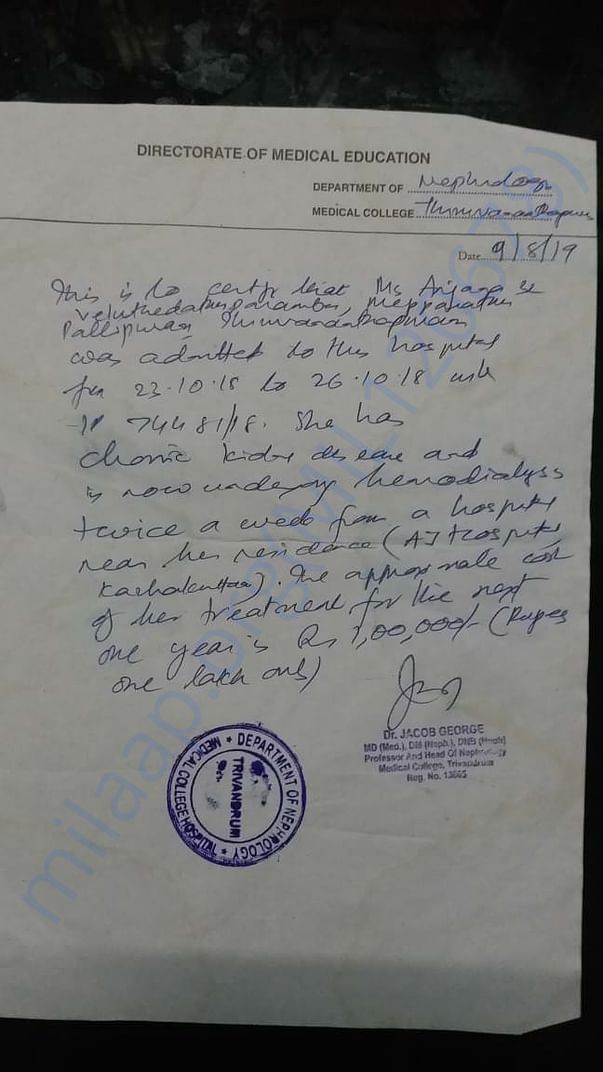 DIRECTORATE OF MEDICAL EDUCATION
DEPARTMENT OF Nephrology
MEDICAL COLLEGE
Date 9/8/19
This is to certify that Ms Anjana
Pallipuram, Thiruvananthapuram
was admitted to this hospital
from 23.10.18 to 26.10.18 with
IP 74481/18. She has
chronic kidney disease and
is now undergoing hemodialysis
twice a week from a hospital
near her residence (AJ Hospital
Kazhakuttam). The approximate cost
of her treatment for the next
one year is Rs 1,00,000/- (Rupees
one lakh only)
Dr. JACOB GEORGE
MD (Med.), DM (Neph.), DNB (Neph)
Professor And Head Of Nephrology
Medical College, Trivandrum
Reg. No. 13665
DEPARTMENT OF NEPHROLOGY
MEDICAL COLLEGE HOSPITAL
TRIVANDRUM
milaap.org